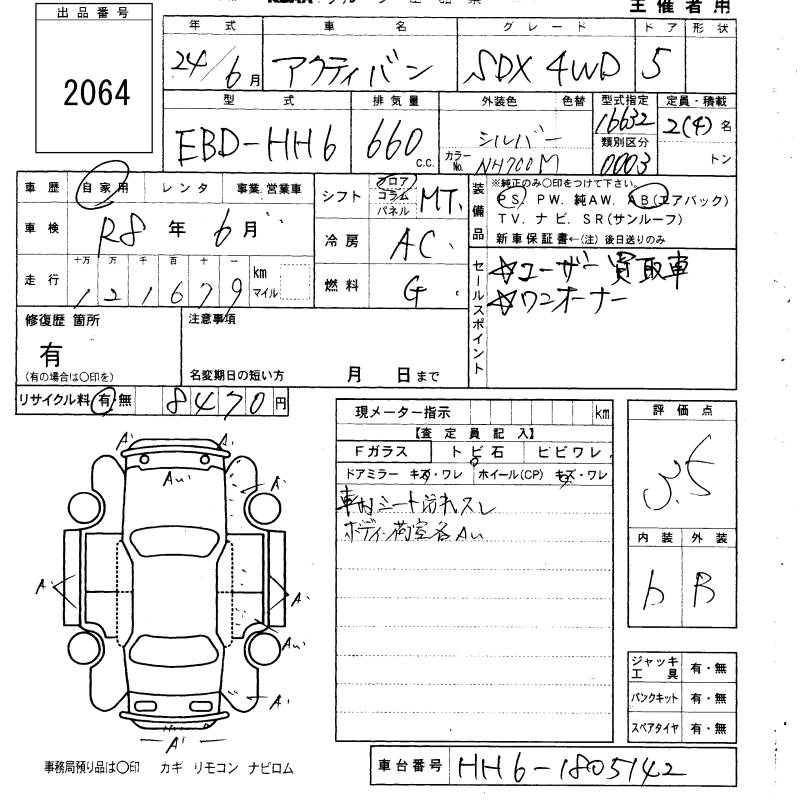 出品番号
2064
主催者用
年式 車名 グレード ドア 形状
24/6月 アクティバン SDX 4WD 5
型式 排気量 外装色 色替 型式指定 定員・積載
EBD-HH6 660 c.c. シルバー 16632 2(4)名
カラーNo. NH700M 類別区分 0003 トン
車歴 自家用 レンタ 事業.営業車
シフト フロア コラム パネル MT.
装備品 ※純正のみ○印をつけて下さい。
PS. PW. 純AW. AB(エアバック)
TV. ナビ. SR(サンルーフ)
新車保証書←(注)後日送りのみ
車検 R8年 6月
冷房 AC.
走行 十万 万 千 百 十 一 km マイル
121679
燃料 G.
セールスポイント
☆ユーザー買取車
☆ワンオーナー
修復歴 箇所
有
(有の場合は○印を)
注意事項
名変期日の短い方 月 日まで
リサイクル料 有 無 8470円
現メーター指示 km
【査定員記入】
Fガラス トビ石 ヒビワレ
ドアミラー キズ・ワレ ホイール(CP) キズ・ワレ
車内シート汚れスレ
ボディ・荷室各Au
評価点
3.5
内装 外装
b B
A' A'
Au
A' A'
A A'
Au
A'
A'
ジャッキ工具 有・無
パンクキット 有・無
スペアタイヤ 有・無
事務局預り品は○印 カギ リモコン ナビロム
車台番号 HH6-1805142